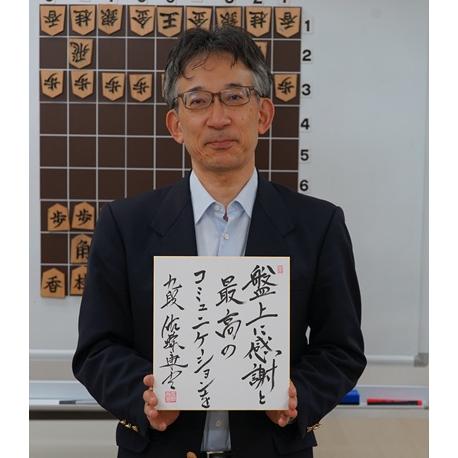 盤上に感謝と
最高の
コミュニケーションを
九段
香 桂 銀 金 王 金 銀 桂 香
飛
歩 歩 歩 歩 歩 歩
歩 歩
角
香 桂
1
2
3
4
5
6